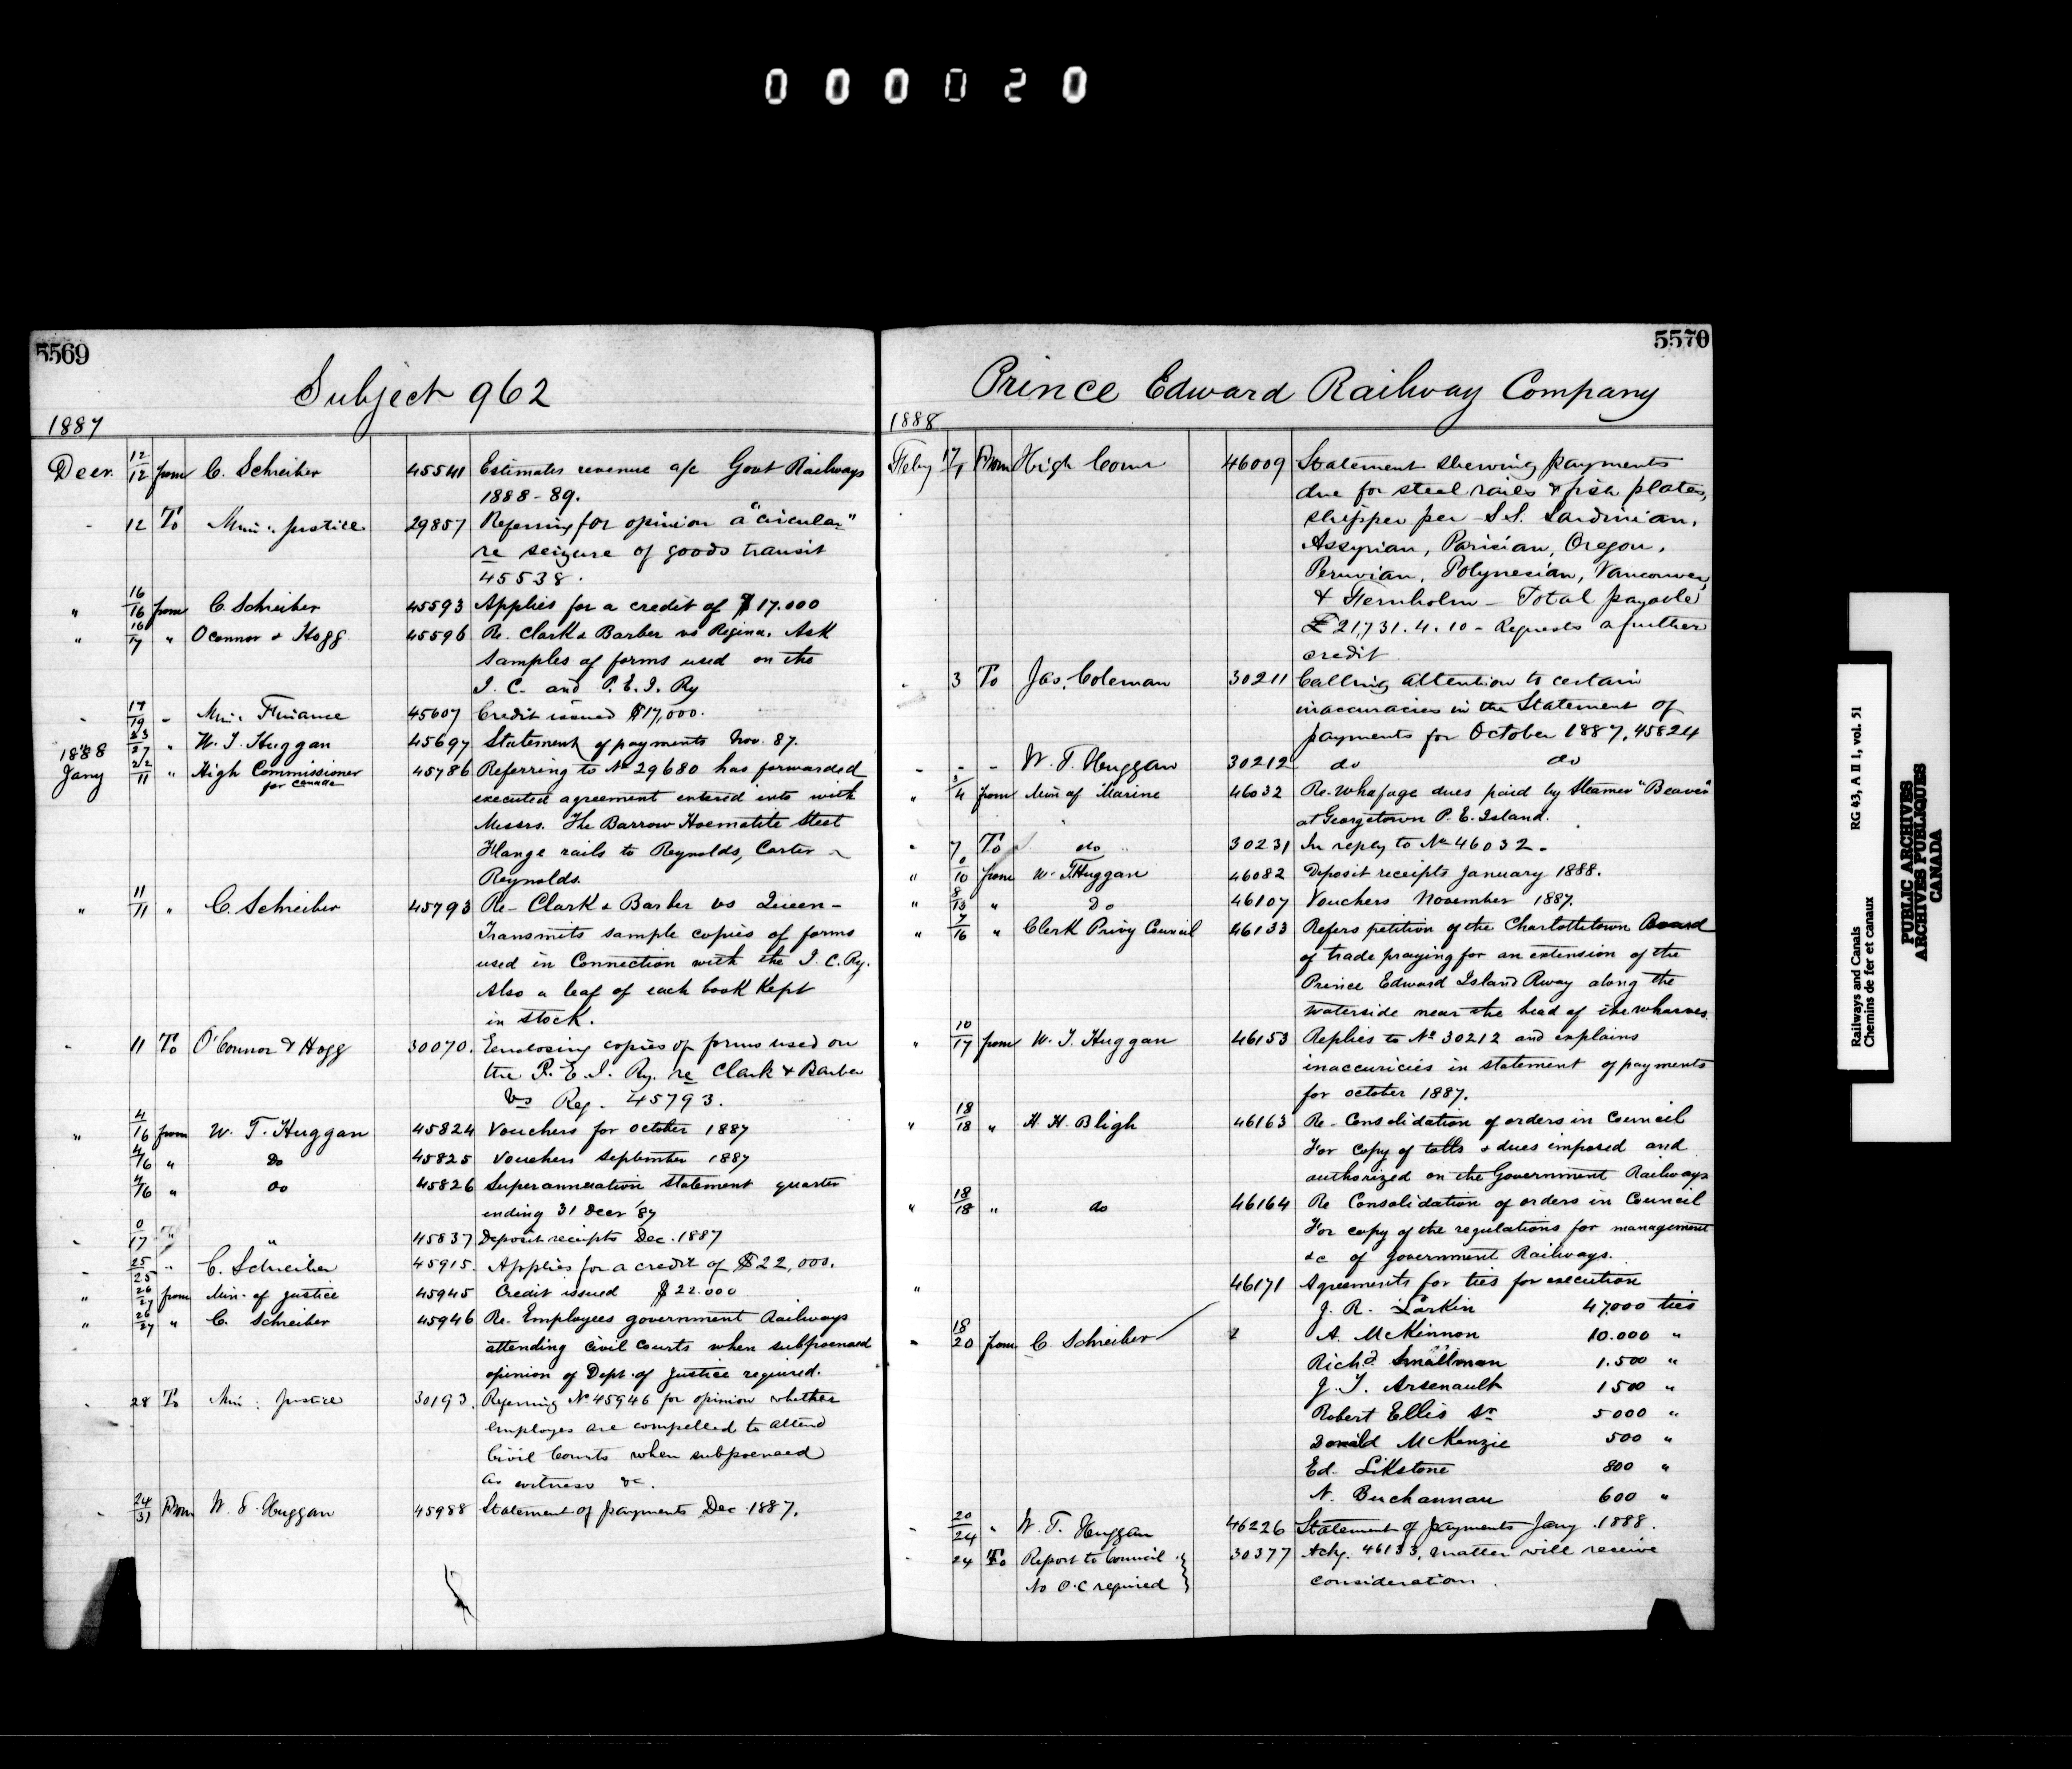 000020
5569
Subject 962
1887
Decr. 12/12 from C. Schreiber 45541 Estimates revenue a/c Govt Railways
1888-89.
- 12 To Min: Justice 29857 Referring for opinion a "circular"
re seizure of goods transit
45538.
" 16/16 from C Schreiber 45593 Applies for a credit of $17.000
" 16/17 " OConnor & Hogg 45596 Re. Clark & Barber vs Regina. Ask
samples of forms used on the
I. C. and P.E.I. Ry
- 17/19 - Min: Finance 45607 Credit issued $17,000.
" 23/27 " W. T. Huggan 45697 Statement of payments Nov. 87.
1888
Jany 22/11 " High Commissioner for Canada 45786 Referring to No 29680 has forwarded
executed agreement entered into with
Messrs. The Barrow Hoematite Steel
Flange rails to Reynolds, Carter &
Reynolds.
" 11/11 " C. Schreiber 45793 Re- Clark & Barber vs Queen-
Transmits sample copies of forms
used in Connection with the I. C. Ry.
Also a leaf of each book Kept
in stock.
- 11 To O'Connor & Hogg 30070. Enclosing copies of forms used on
the P. E. I. Ry. re Clark & Barber
vs Reg. 45793.
" 4/16 from W. T. Huggan 45824 Vouchers for october 1887
4/16 " Do 45825 Vouchers September 1887
4/16 " Do 45826 Superannuation Statement quarter
ending 31 Decr '87
- 0/17 " " 45837 Deposit receipts Dec. 1887
- 25/25 " C. Schreiber 45915. Applies for a credit of $22,000.
" 26/27 from Min. of Justice 45945 Credit issued $22.000
" 26/27 " C. Schreiber 45946 Re. Employees government Railways
attending civil courts when subpoenaed
opinion of Dept. of Justice required.
- 28 To Min: Justice 30193. Referring No 45946 for opinion whether
employes are compelled to attend
Civil Courts when subpoenaed
as witness &c.
- 24/31 From W. T. Huggan 45988 Statement of payments Dec. 1887.
5570
Prince Edward Railway Company
1888
Feby 17/1 From High Comr 46009 Statement shewing payments
due for steel rails & fish plates,
shipper per - S.S. Sardinian,
Assyrian, Parisian, Oregon,
Peruvian, Polynesian, Vancouver,
& Fernholm - Total payable
£21,731.4.10 - Requests a further
credit
- 3 To Jas. Coleman 30211 Calling attention to certain
inaccuracies in the Statement of
payments for October 1887, 45824
- - - W. T. Huggan 30212 do do
" 3/4 from Min of Marine 46032 Re. Whafage dues paid by Steamer "Beaver"
at Georgetown P. E. Island.
" 7 To do 30231 In reply to No 46032.
" 0/10 from W. T. Huggan 46082 Deposit receipts January 1888.
" 8/13 " Do 46107 Vouchers November 1887.
" 7/16 " Clerk Privy Council 46133 Refers petition of the Charlottetown Board
of trade praying for an extension of the
Prince Edward Island Rway along the
waterside near the head of the wharves.
" 10/17 from W. T. Huggan 46153 Replies to No 30212 and explains
inaccuricies in statement of payments
for october 1887.
" 18/18 " H. H. Bligh 46163 Re- Consolidation of orders in Council
For copy of tolls & dues imposed and
authorized on the Government Railways
" 18/18 " do 46164 Re Consolidation of orders in Council
For copy of the regulations for management
&c of government Railways.
" 46171 Agreements for ties for execution
J. R. Larkin 47,000 ties
- 18/20 from C. Schreiber A. McKinnon 10.000 "
Richd. Smallman 1.500 "
J. T. Arsenault 1500 "
Robert Ellis Sr 5000 "
Donald McKenzie 500 "
Ed. Likstone 800 "
N. Buchannan 600 "
- 20/24 " W. T. Huggan 46226 Statement of payments Jany. 1888.
- 24 To Report to Council 30377 Ackg. 46133, matter will receive
No O.C required consideration.
Railways and Canals RG 43, A II 1, vol. 51
Chemins de fer et canaux
PUBLIC ARCHIVES
ARCHIVES PUBLIQUES
CANADA